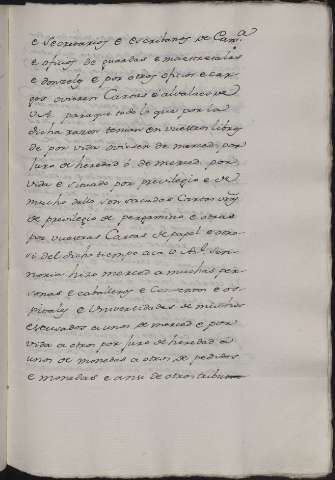 e secretarios e escribanos de Cam.ª
e oficios de guardas e maestresalas
e donzeles e por otros oficios e car
gos ovieren Cartas e alvalaes de
V.A. para que todo lo que por la
dicha razon tenian en vuestros libros
de por vida oviesen de merced por
juro de heredad o de merced por
vida e situado por previlegio e de
mucho dello son sacadas Cartas
de previlegio de pergamino e otras
por vuestras Cartas de papel e otro
si del dicho tiempo aca la Al. Sen
noria hizo merced a muchas per
sonas e caballeros e Conventos e os
pitales e Universidades de muchos
escusados a unos de merced e por
vida a otros por juro de heredad a
unos de monedas a otros de pedidos
e monedas e ansi de otros tributos